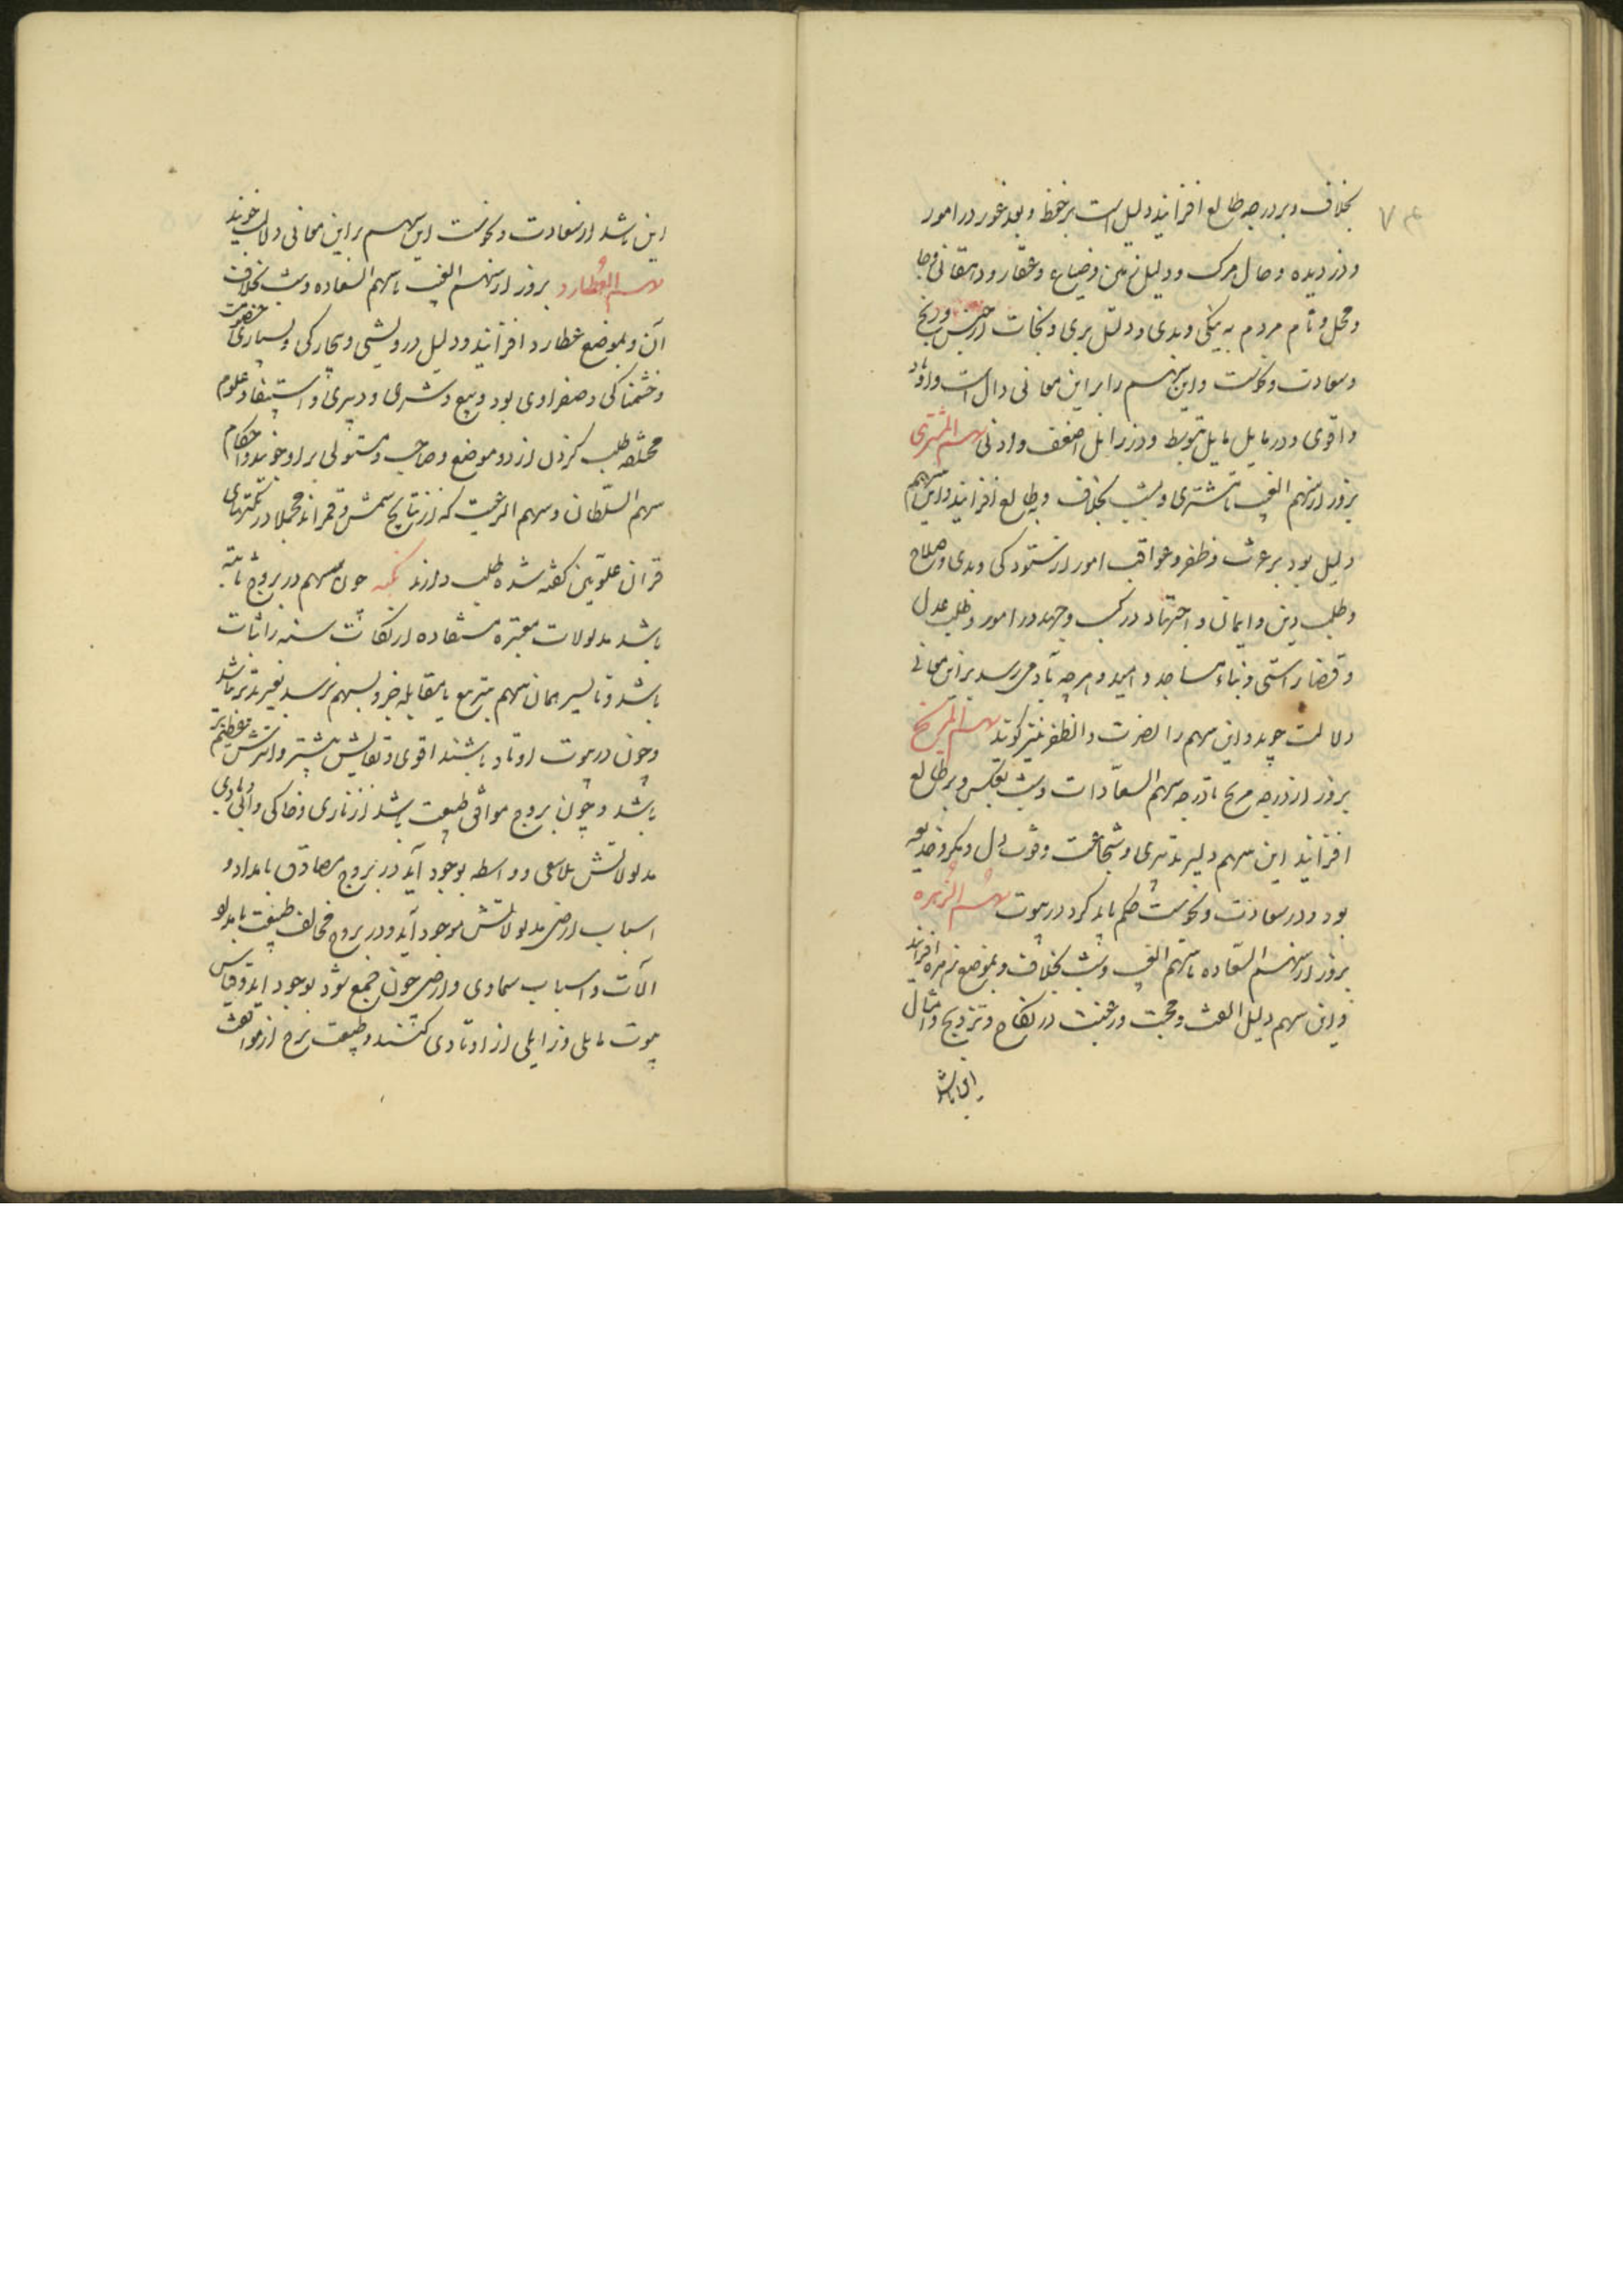 ۷۴
بخلاف و بر درجه طالع افزایند دلیل است بر حفظ و بعد غور در امور
و دزدیده و حال مرگ و دلیل زمین و ضیاع و عقار و دهقانی و جا
و محل و نام مردم به نیکی و بدی و دلیل پری و نجات از حبس و رنج
و سعادت و نحوست و این سهم را بر این معانی دال است و اوتاد
و اقوی و در مایل مایل بتوسط و در زایل اضعف و ادنی سهم المشتری
بروز از سهم الغیب تا مشتری و بشب بخلاف و بطالع افزایند و این سهم
دلیل بود بر عزت و ظفر و عواقب امور از ستودگی و بدی و صلاح
و طلب دین و ایمان و اجتهاد در کسب و جهد در امور و طلب عدل
و قضا راستی و بناء مساجد و امید و هرچه بآدمی رسد بر این معانی
دلالت جوید و این سهم را لضرت و الظفر نیز گویند سهم المریخ
بروز از درجه مریخ تا درجه سهم السعادات و بشب بعکس و بر طالع
افزایند این سهم دلیر تدبیری و شجاعت و قوت دل و مکر و خدیعه
بود و در سعادت و نحوست حکم باید کرد در بیوت سهم الزهره
بروز از سهم السعاده تا سهم الغیب و بشب بخلاف و بموضع زهره افزایند
و این سهم دلیل الفت و محبت و رغبت در نکاح و تزویج و امثال
این باشد
این باشد از سعادت و نحوست این سهم بر این معانی دلالت جویند
سهم العطارد بروز از سهم الغیب تا سهم السعاده و بشب بخلاف
آن و بموضع عطارد افزایند و دلیل درویشی و بیچارگی و بسیاری خصومت
و خشمناکی و صفراوی بود و بیع و شری و دبیری و استفاد علوم
مختلفه طلب کردن از دو موضع و صاحب و مستولی بر او جویند و احکام
سهم السلطان و سهم الرعیت که از نتایج شمس و قمراند مجملا در نکتهای
قران علویین گفته شده طلب دارند نکته چون سهم در بروج ثابته
باشد مدلولات معتبره مستفاده از نکات سنه را ثبات
باشد و تا تسیر همان سهم بتربیع یا مقابله جزو سهم نرسد تغیر پذیر نباشد
و چون در بیوت اوتاد باشند اقوی و بقایش بیشتر و اثرش عظیم‌تر
باشد و چون بروج موافق طبیعت باشد از ناری و خاکی و آبی و بادی
مدلولاتش بلاسعی و واسطه بوجود آید در بروج مصادق بامداد و
اسباب ارضی مدلولاتش موجود آید و در بروج مخالف طبیعت بامدلو
الآت و اسباب سماوی و ارضی چون جمع شود بوجود آید و قیاس
بیوت مایلی و زایلی از اوتادی کنند و طبیعت برج از موافقت